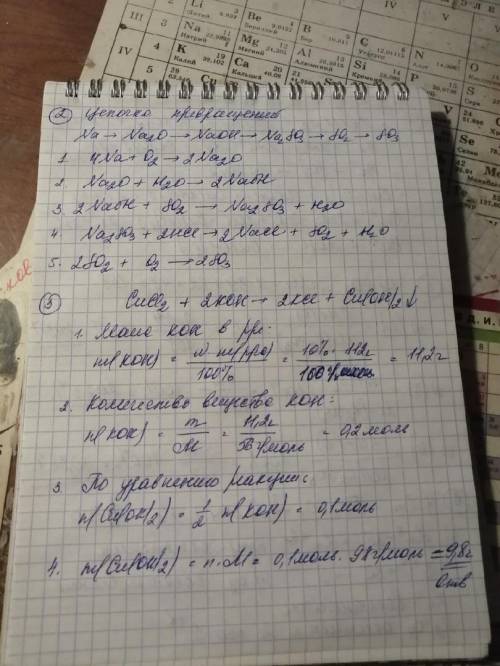 III
IV
4
5
Li
Литий
Be
Бериллий
B
Бор
Na
Натрий
Mg
Магний
Al
Алюминий
Si
K
Калий
39,102
Ca
Кальций
40,08
Cu
Se
② Цепочка превращений
Na → Na₂O → NaOH → Na₂SO₃ → SO₂ → SO₃
1. 4Na + O₂ → 2Na₂O
2. Na₂O + H₂O → 2NaOH
3. 2NaOH + SO₂ → Na₂SO₃ + H₂O
4. Na₂SO₃ + 2HCl → 2NaCl + SO₂ + H₂O
5. 2SO₂ + O₂ → 2SO₃
③ CuCl₂ + 2KOH → 2KCl + Cu(OH)₂↓
1. Масса KOH в р-ре:
m(KOH) = W·m(р-ра)/100% = 10%·112г/100% = 11,2г
2. Количество вещества KOH:
n(KOH) = m/M = 11,2г/56г/моль = 0,2 моль
3. По уравнению реакции:
n(Cu(OH)₂) = 1/2 n(KOH) = 0,1 моль
4. m(Cu(OH)₂) = n·M = 0,1 моль · 98г/моль = 9,8г
Отв